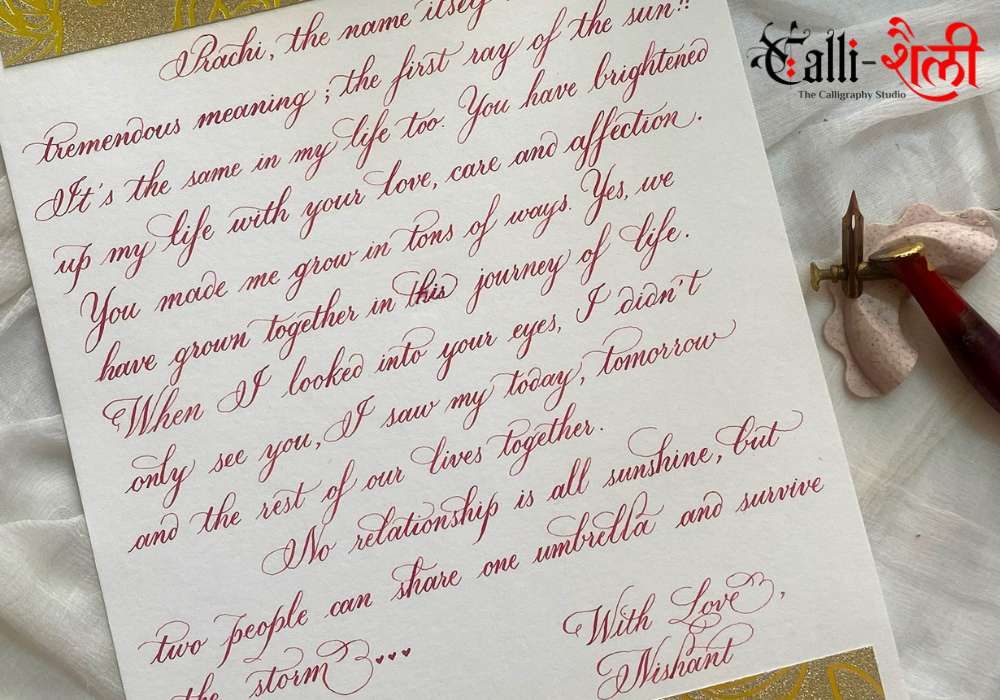 Calli-शैली
The Calligraphy Studio
Prachi, the name itself
tremendous meaning ; the first ray of the sun!!
It's the same in my life too. You have brightened
up my life with your love, care and affection.
You made me grow in tons of ways. Yes, we
have grown together in this journey of life.
When I looked into your eyes, I didn't
only see you, I saw my today, tomorrow
and the rest of our lives together.
No relationship is all sunshine, but
two people can share one umbrella and survive
the storm
With Love,
Nishant